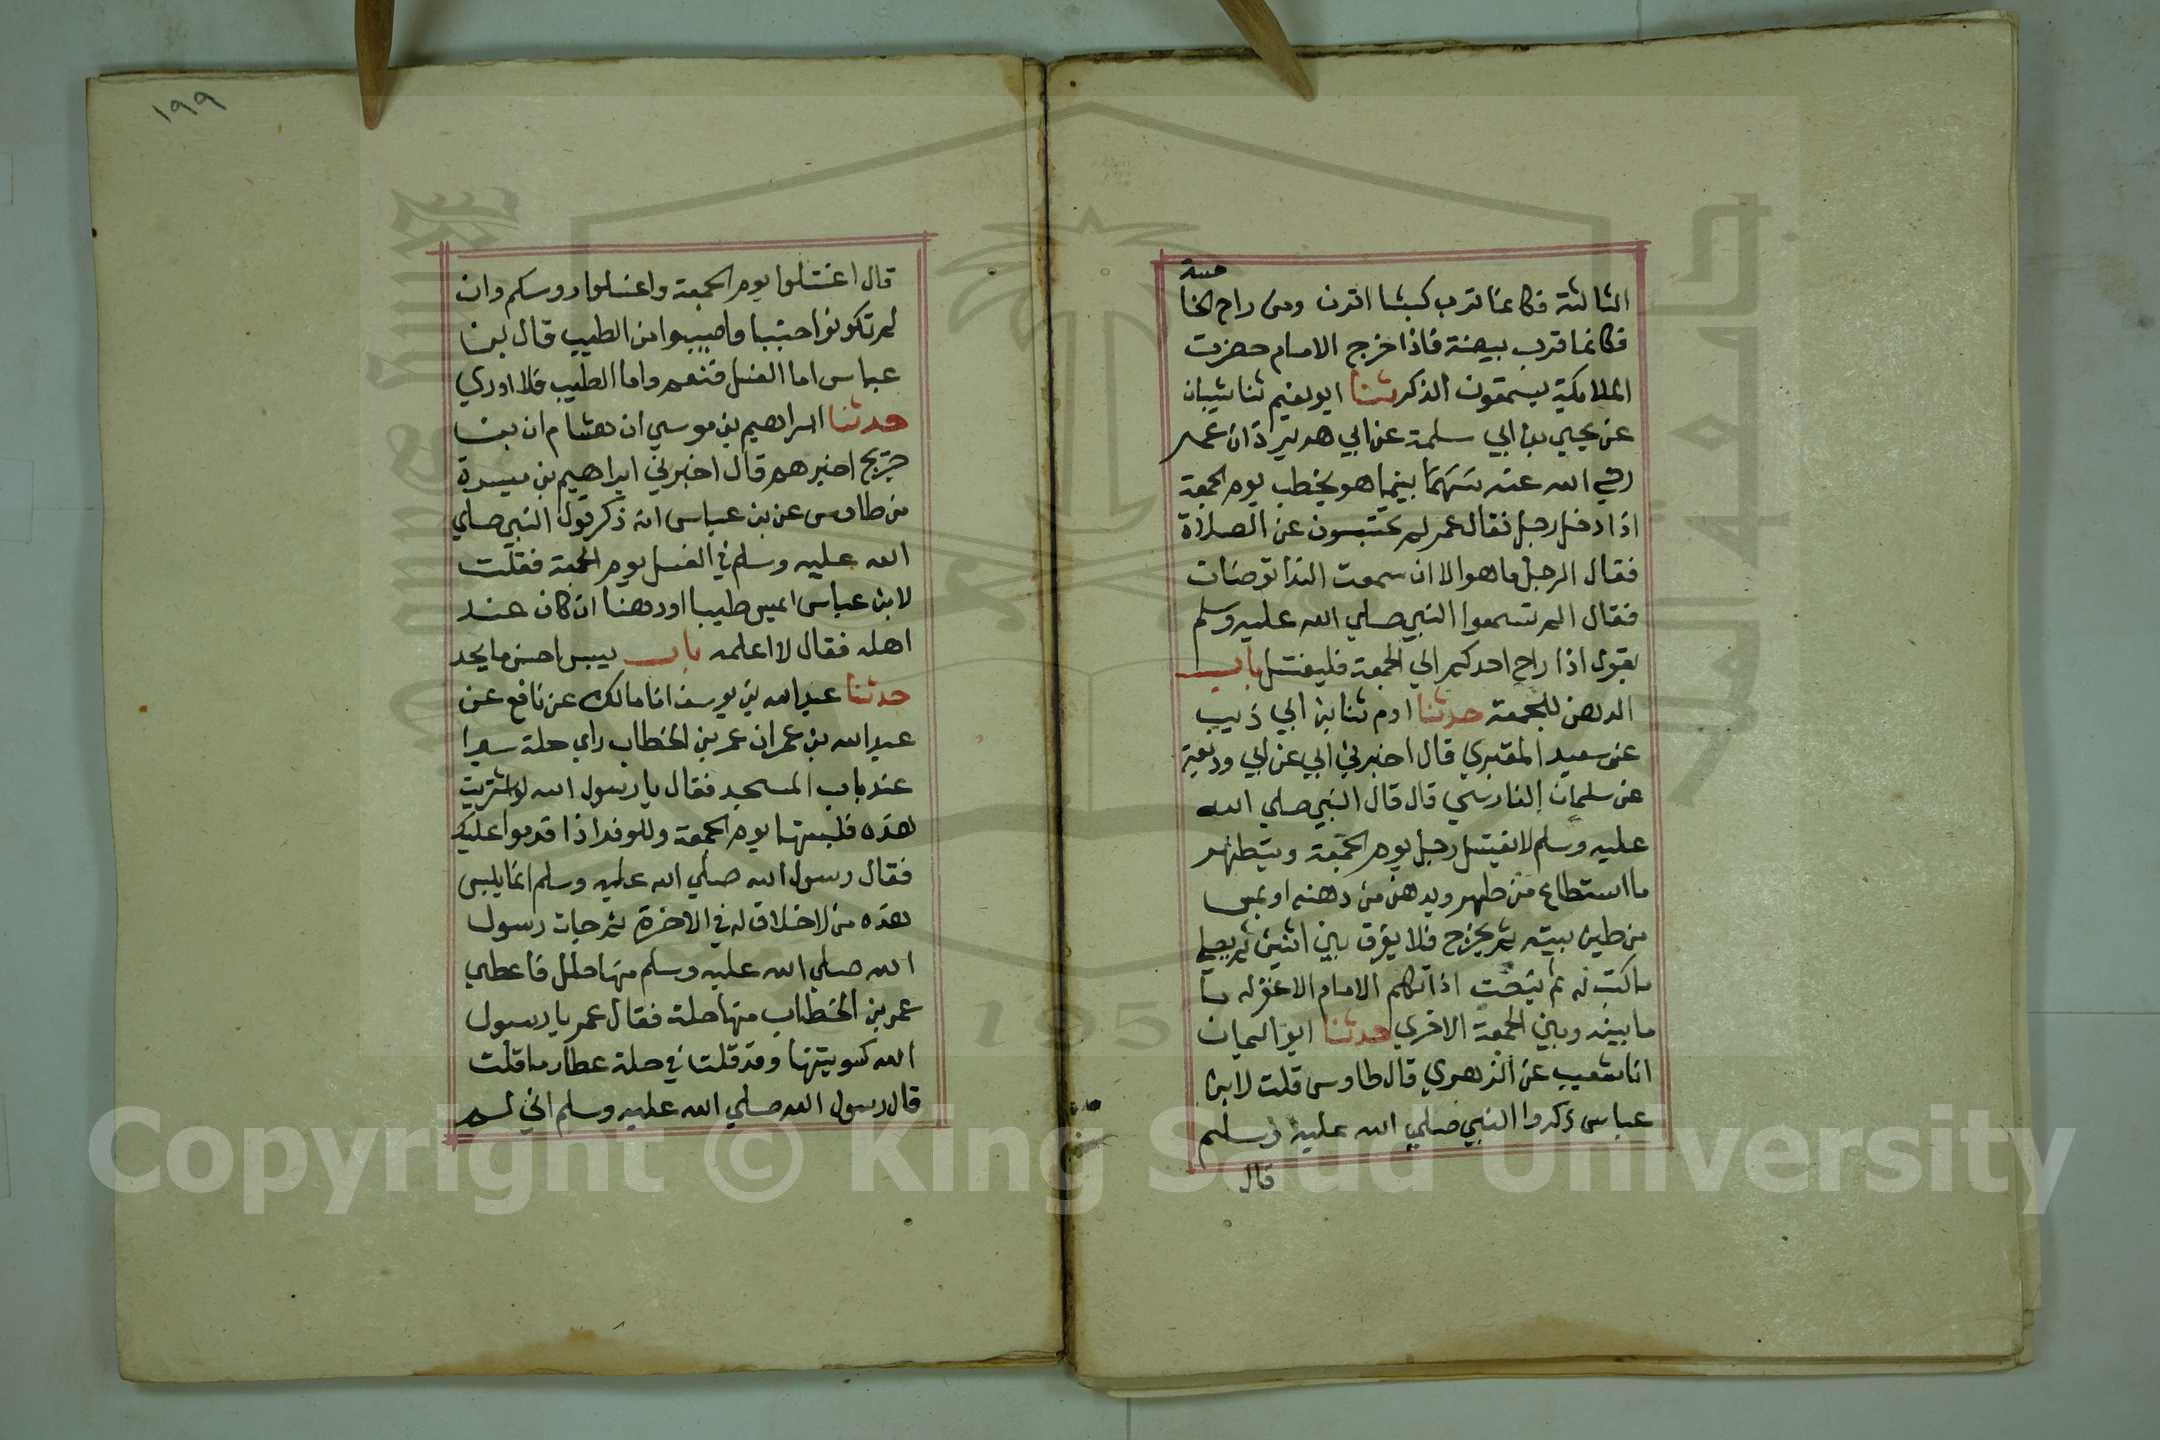 الثالثة فكانما قرب كبشا اقرن ومن راح الخا
مسة
فكانما قرب بيضة فاذا خرج الامام حضرت
الملايكة يستمعون الذكر ثنا ابو نعيم ثنا شيبان
عن يحيي بن ابي سلمة عن ابي هريرة ان عمر
رضي الله عنه بينما هو يخطب يوم الجمعة
اذا دخل رجل فقال عمر لم تحتبسون عن الصلاة
فقال الرجل ما هو الا ان سمعت الندا توضات
فقال الم تسمعوا النبي صلي الله عليه وسلم
يقول اذا راح احدكم الي الجمعة فليغتسل باب
الدهن للجمعة حدثنا ادم ثنا بن ابي ذيب
عن سعيد المقبري قال اخبرني ابي عن ابي وديعة
عن سلمان الفارسي قال قال النبي صلي الله
عليه وسلم لا يغتسل رجل يوم الجمعة ويتطهر
ما استطاع من طهر ويدهن من دهنه او يمس
من طيب بيته ثم يخرج فلا يفرق بين اثنين ثم يصلي
ما كتب له ثم ينصت اذا تكلم الامام الا غفر له ما
ما بينه وبين الجمعة الاخري حدثنا ابو اليمان
انا شعيب عن الزهري قال طاوس قلت لابن
عباس ذكروا النبي صلي الله عليه وسلم
قال
١٩٩
قال اغتسلوا يوم الجمعة واغسلوا روسكم وان
لم تكونوا جنبا واصيبوا من الطيب قال بن
عباس اما الغسل فنعم واما الطيب فلا ادري
حدثنا ابراهيم بن موسي ان هشام ان بن
جريج اخبرهم قال اخبرني ابراهيم بن ميسرة
من طاوس عن بن عباس انه ذكر قول النبي صلي
الله عليه وسلم في الغسل يوم الجمعة فقلت
لابن عباس ايمس طيبا او دهنا ان كان عند
اهله فقال لا اعلمه باب يلبس احسن ما يجد
حدثنا عبد الله بن يوسف انا مالك عن نافع عن
عبد الله بن عمر ان عمر بن الخطاب راي حلة سيرا
عند باب المسجد فقال يا رسول الله لو اشتريت
هذه فلبستها يوم الجمعة وللوفد اذا قدموا عليك
فقال رسول الله صلي الله عليه وسلم انما يلبس
هذه من لا خلاق له في الاخرة ثم جات رسول
الله صلي الله عليه وسلم منها حلل فاعطي
عمر بن الخطاب منها حلة فقال عمر يا رسول
الله كسوتنيها وقد قلت في حلة عطارد ما قلت
قال رسول الله صلي الله عليه وسلم اني لم
Copyright © King Saud University
1957